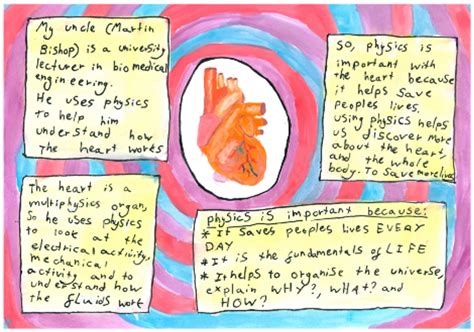 My uncle (Martin
Bishop) is a university
lecturer in biomedical
engineering.
He uses physics
to help him
understand how
the heart works.
So, physics is
important with
the heart because
it helps save
peoples lives.
using physics helps
us discover more
about the heart,
and the whole
body. To save more lives
The heart is a
multiphysics organ,
So he uses physics
to look at the
electrical activity,
mechanical
activity and to
understand how
the fluids work
physics is important because:
* It saves peoples lives EVERY
DAY
* It is the fundamentals of LIFE
* It helps to organise the universe,
explain WHY?, WHAT? and
HOW?